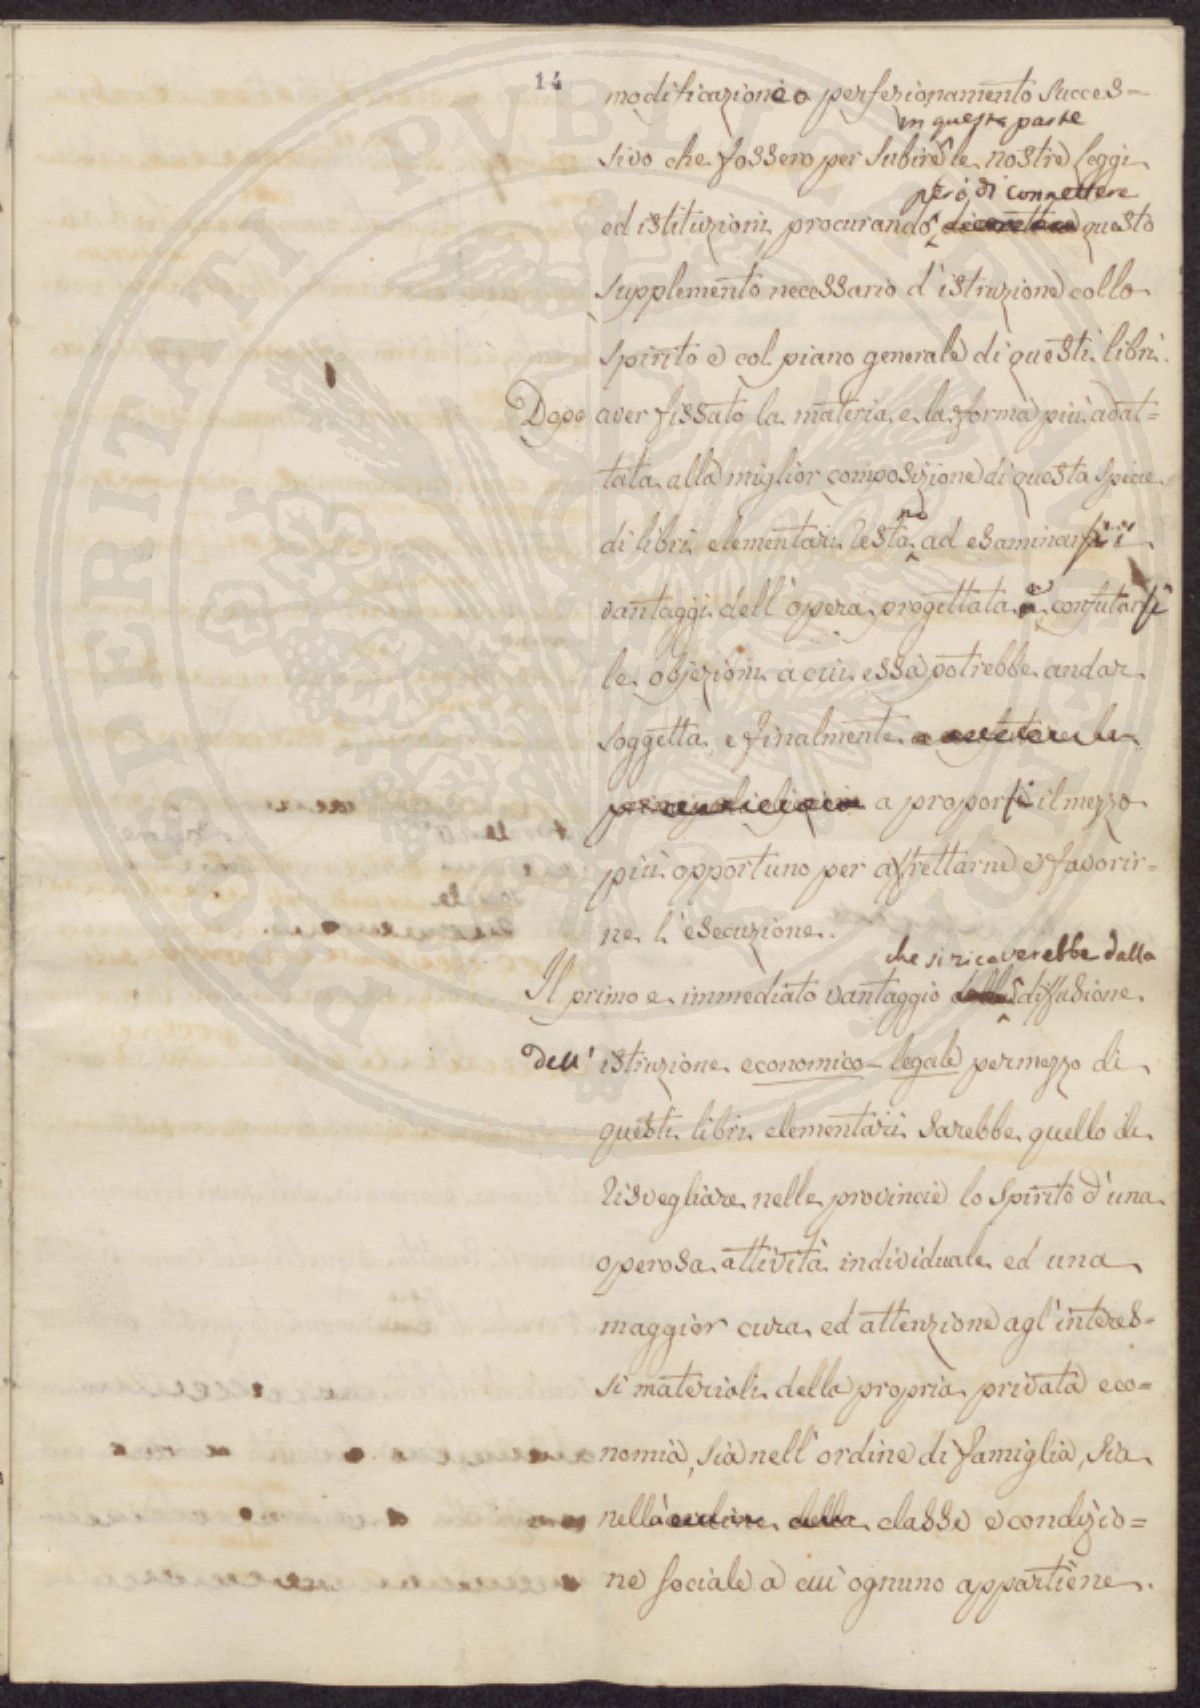 14
modificazione o perfezionamento succes=
in questa parte
sivo che fossero per subire le nostre Leggi
però di connettere
ed istituzioni, procurando questo
supplemento necessario d'istruzione collo
spirito e col piano generale di questi libri.
Dopo aver fissato la materia e la forma più adat=
tata alla miglior composizione di questa specie
no
di libri elementari resta ad esaminarsi i
vantaggi dell'opera progettata a confutarsi
le objezioni a cui essa potrebbe andar
soggetta, e finalmente
a proporsi il mezzo
più opportuno per affrettarne e favorir=
ne l'esecuzione.
che si ricaverebbe dalla
Il primo e immediato vantaggio della diffusione
dell' istruzione economico-legale per mezzo di
questi libri elementari sarebbe quello di
risvegliare nelle provincie lo spirito d'una
operosa attività individuale ed una
maggior cura ed attenzione agl'interes=
si materiali della propria privata eco=
nomia, sia nell'ordine di famiglia, sia
nella ordine della classe e condizio=
ne sociale a cui ognuno appartiene.
PROSPERITATI PVBLICAE